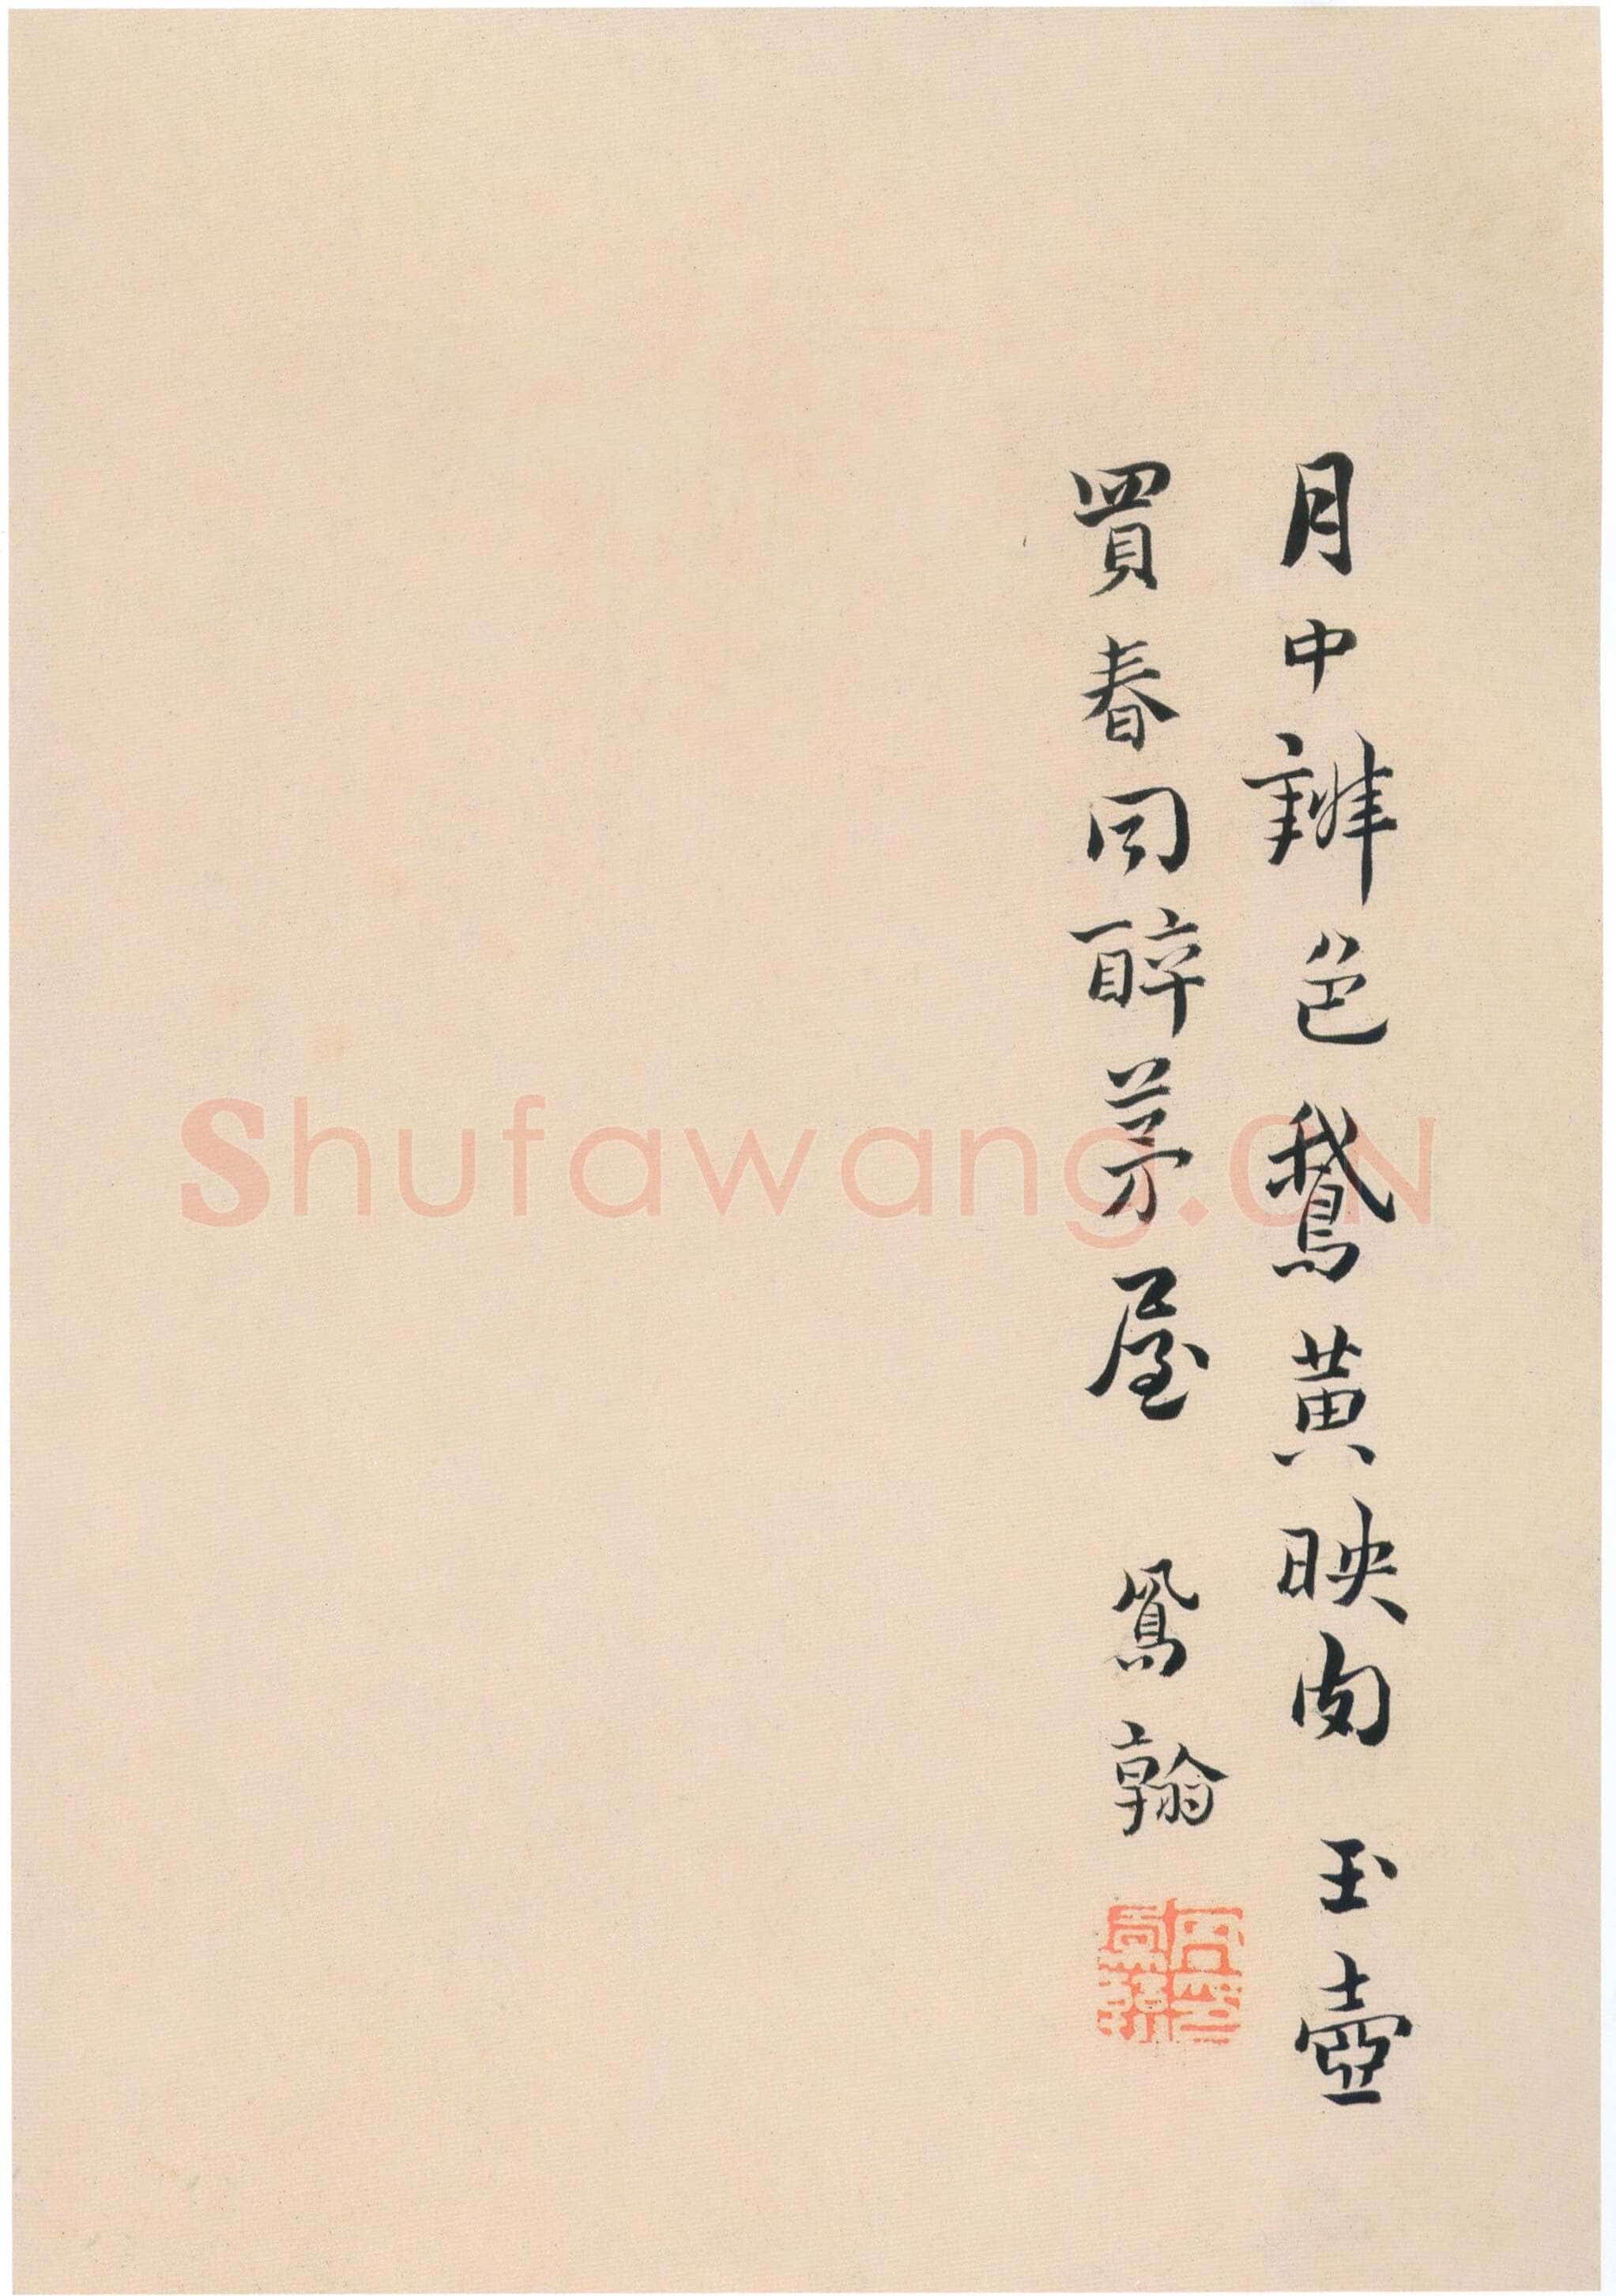 月中辨色鵝黃映肉玉壺
買春同醉茅屋 鳳翰
Shufawang.CN